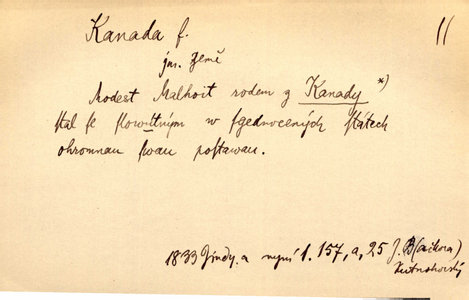 Kanada f.
11
jm. země
Modest Malhoit rodem z Kanady *)
stal se slowutným w sgednocených státech
ohromnau swau postawau.
1833 Jindy a nyní 1. 157, a, 25 J. B(aikora)
Kutnohorský